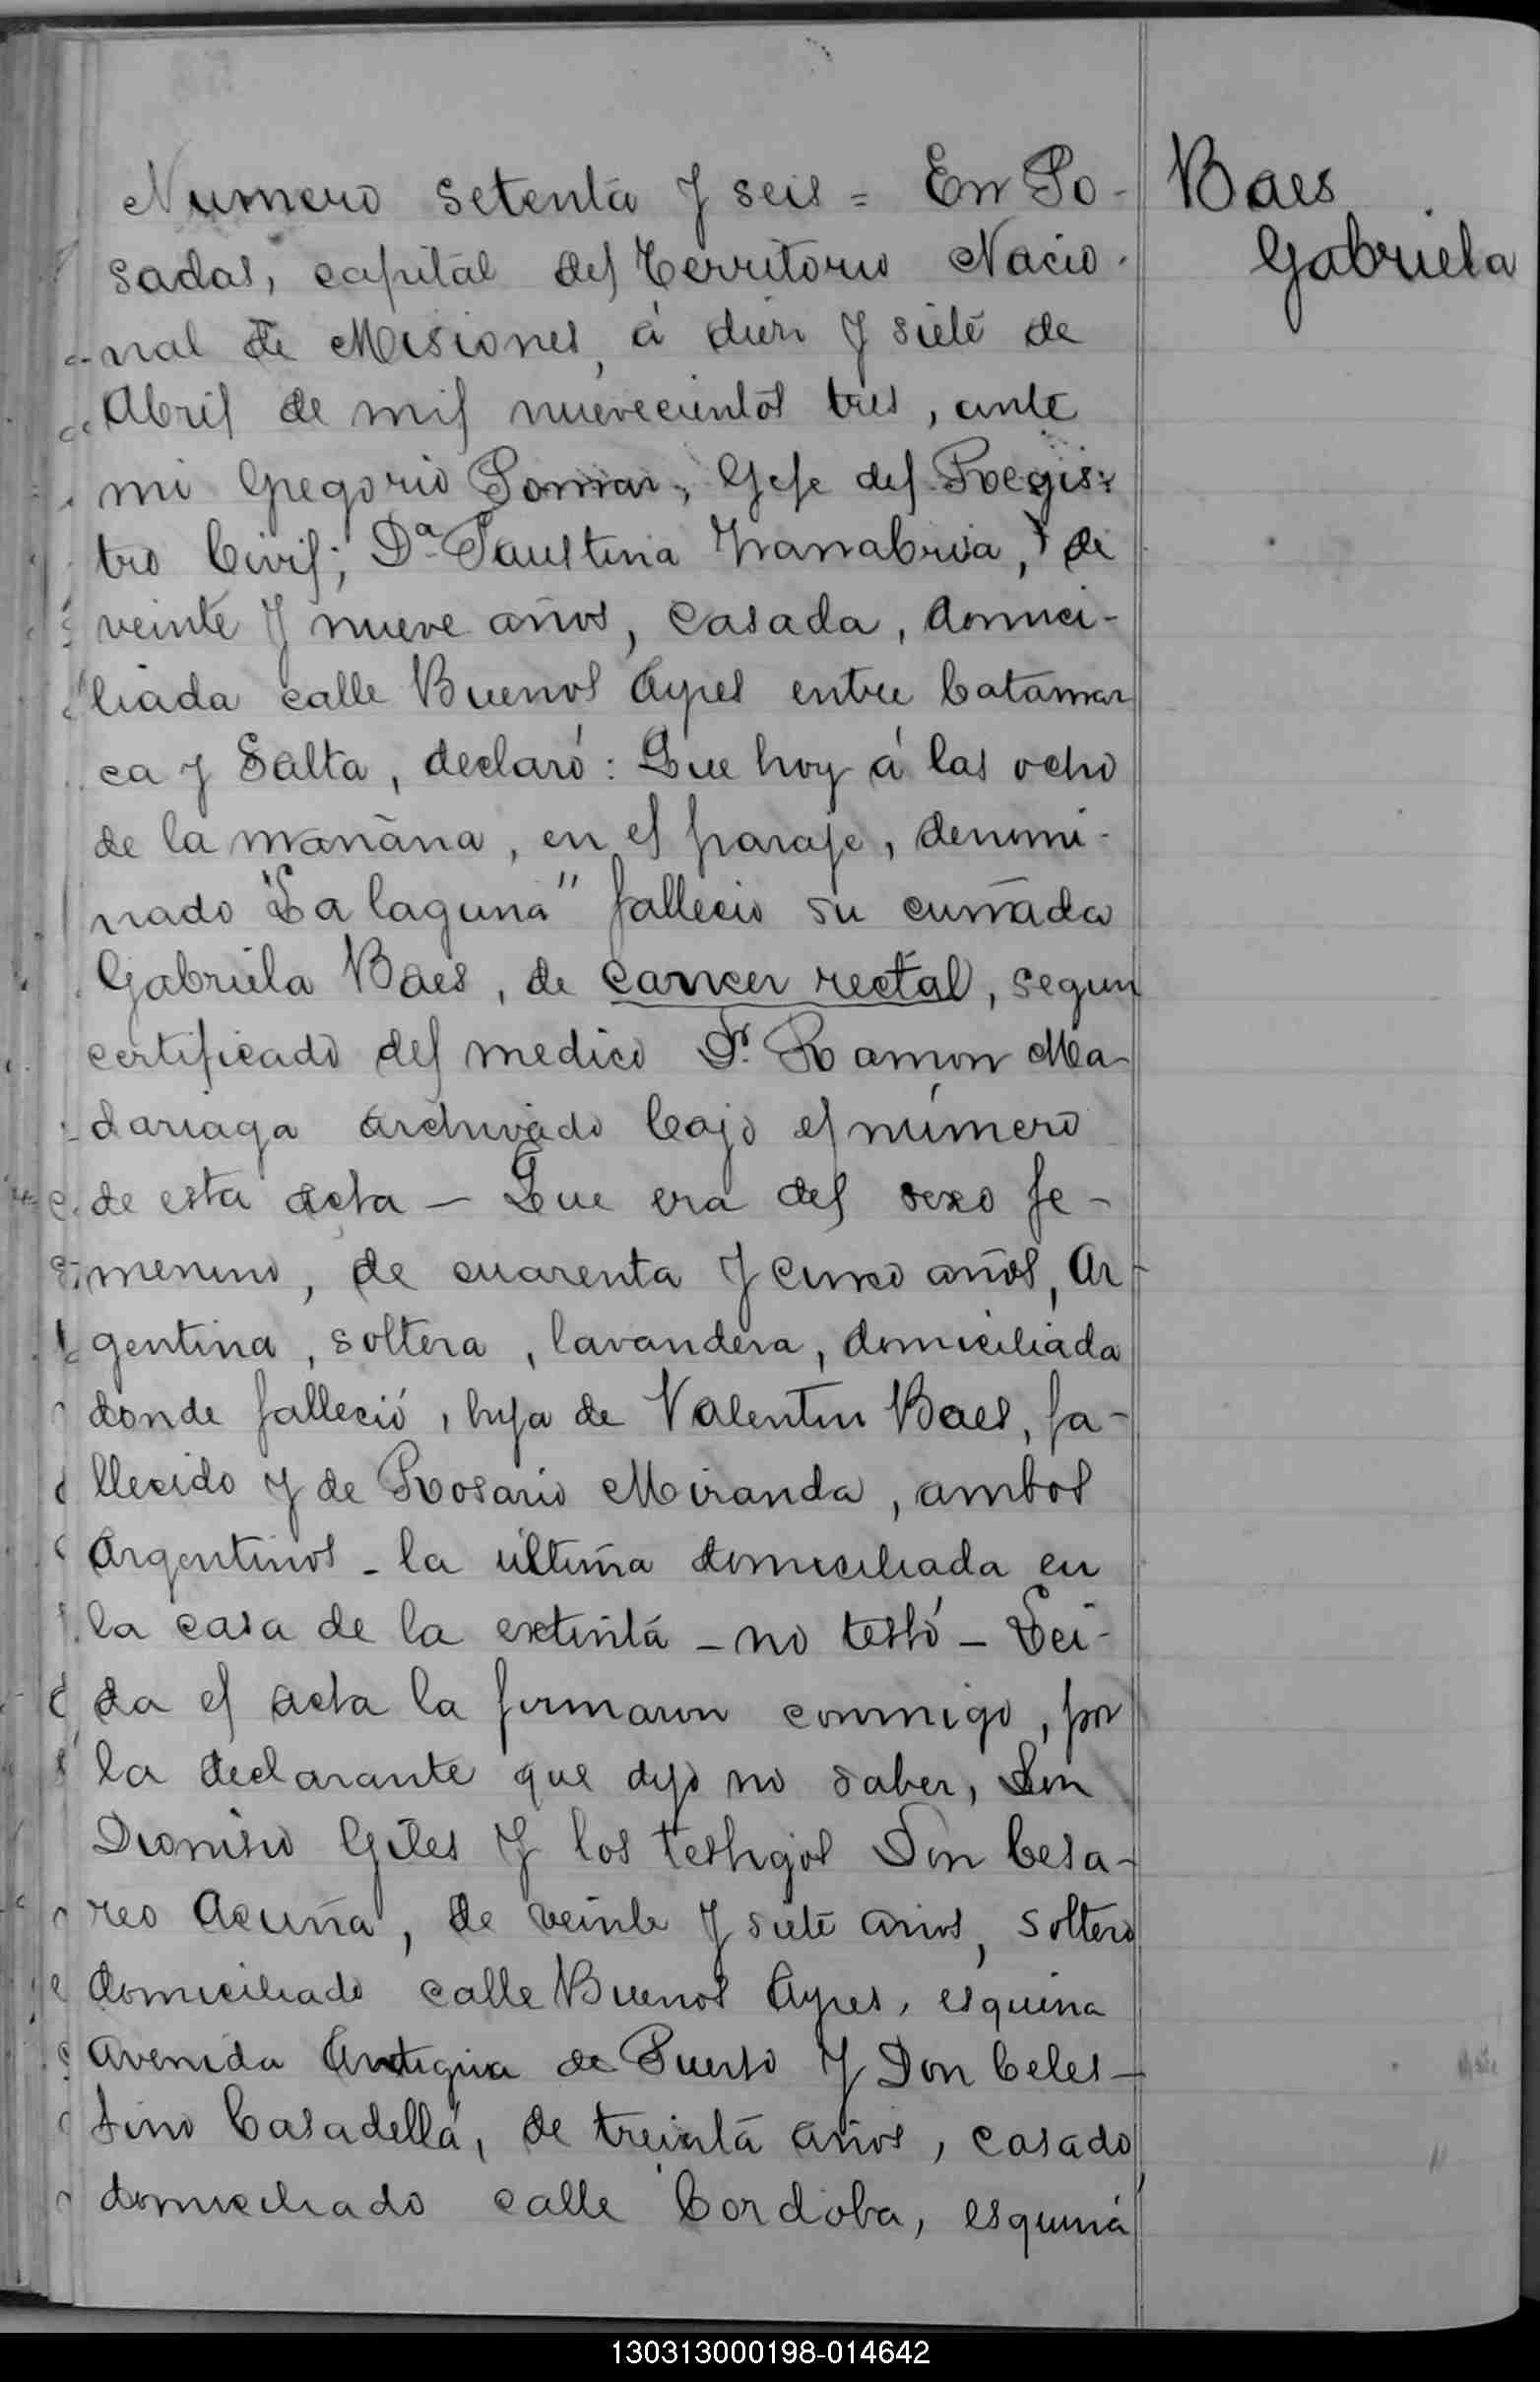 Baes
Gabriela
Numero setenta y seis = En Po-
sadas, capital del Territorio Nacio-
nal de Misiones, á diez y siete de
Abril de mil nuevecientos tres, ante
mi Gregorio Pomar, Gefe del Regis-
tro Civil; Dª Faustina , de
veinte y nueve años, casada, domici-
liada calle Buenos Ayres entre Catamar
ca y Salta, declaró: Que hoy á las ocho
de la mañana, en el paraje, denomi-
nado "La laguna" fallecio su cuñada
Gabriela Baes, de cancer rectal, segun
certificado del medico Dr. Ramon Ma-
dariaga archivado bajo el número
de esta acta - Que era del sexo fe-
menino, de cuarenta y cinco años, Ar-
gentina, soltera, lavandera, domiciliada
donde falleció, hija de Valentin Baes, fa-
llecido y de Rosario Miranda, ambos
Argentinos - la última domiciliada en
la casa de la extinta - no testó - Lei-
da el acta la firmaron conmigo, por
la declarante que dijo no saber, Don
Dionisio Giles y los testigos Don Cesa-
reo Acuña, de veinte y siete años, soltero
domiciliado calle Buenos Ayres, esquina
Avenida Antigua de Puerto y Don Celes-
tino Casadellá, de treinta años, casado,
domiciliado calle Cordoba, esquina
130313000198-014642